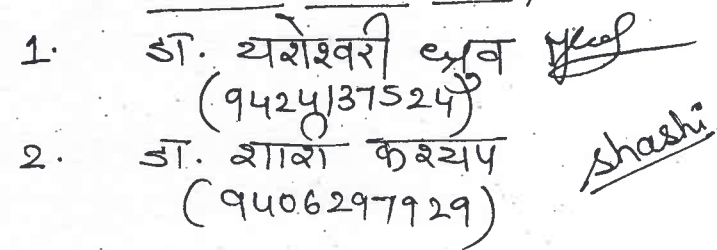 1. डॉ. यशेश्वरी ध्रुव
(9424137524)
2. डॉ. शशि कश्यप shashi
(9406297929)